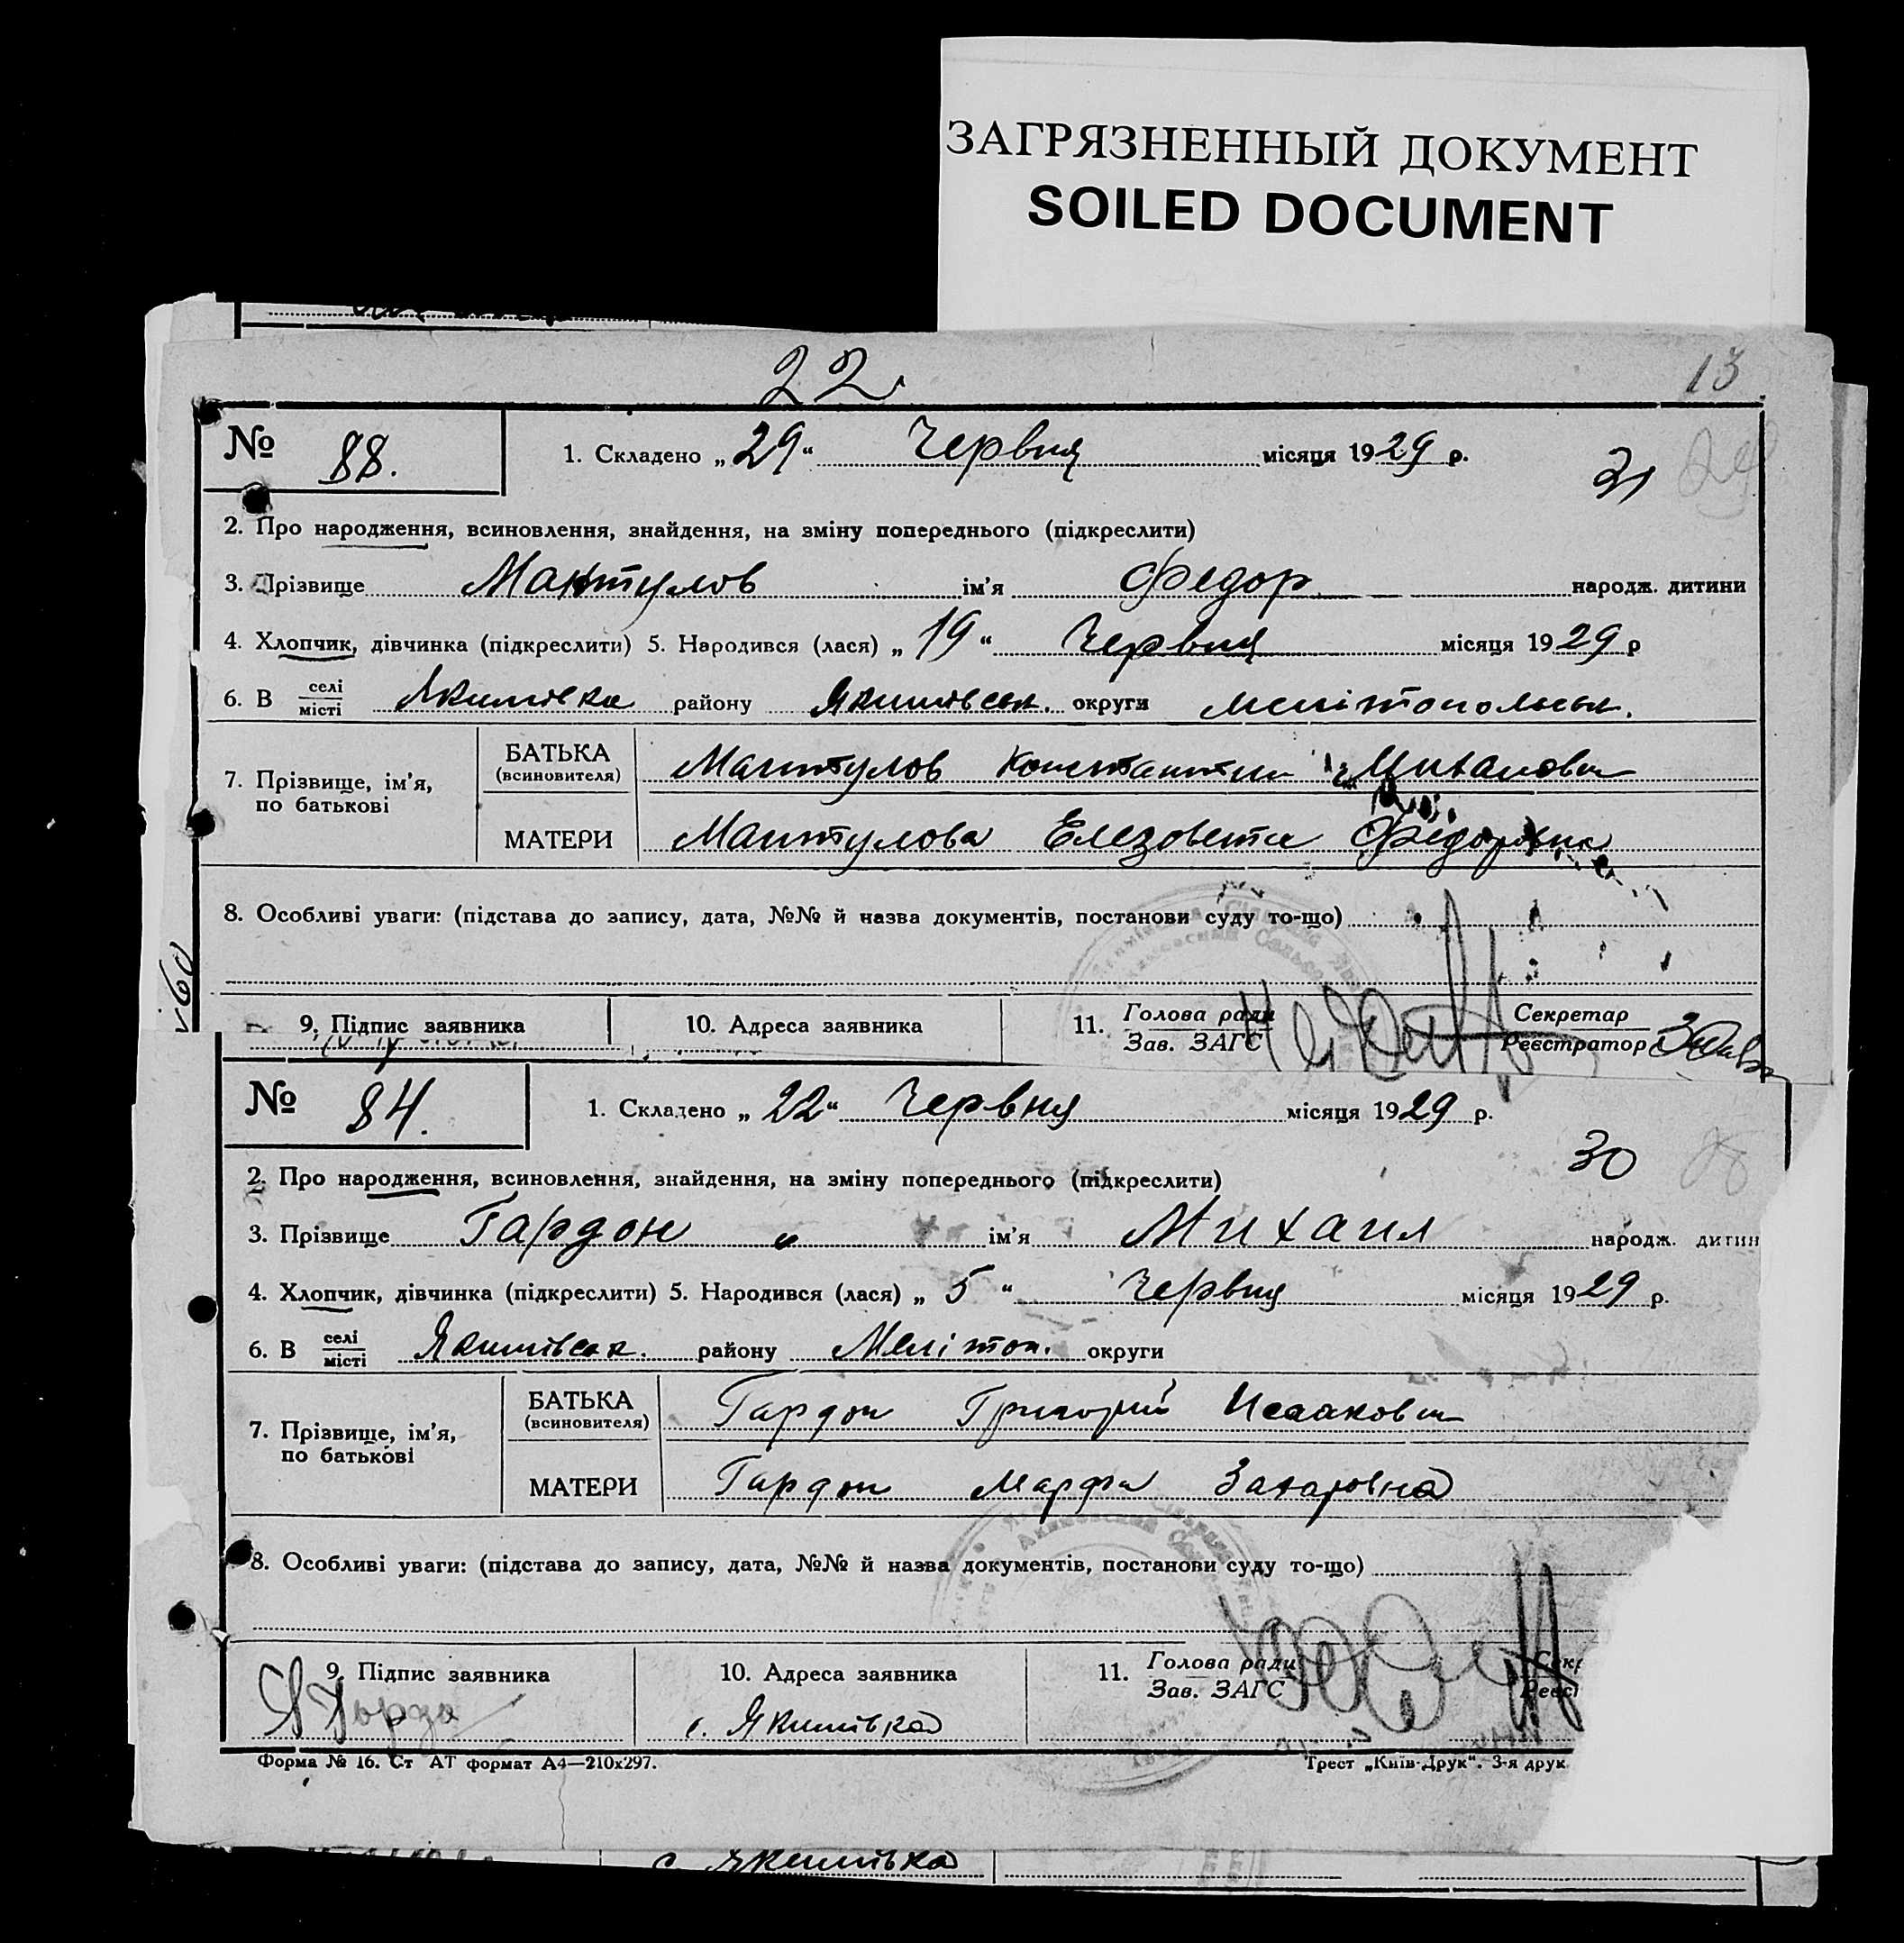 ЗАГРЯЗНЕННЫЙ ДОКУМЕНТ
SOILED DOCUMENT
22
13
№ 88. 1. Складено „29“ Червня місяця 1929 р.
31
2. Про народження, всиновлення, знайдення, на зміну попереднього (підкреслити)
3. Прізвище Мантулов ім'я Федор народж. дитини
4. Хлопчик, дівчинка (підкреслити) 5. Народився (лася) „19“ Червня місяця 1929 р
6. В селі місті Якимівка району Якимівськ. округи Мелітопольськ.
7. Прізвище, ім'я, по батькові
БАТЬКА (всиновителя) Мантулов Константин
МАТЕРИ Мантулова Елезовета Федоровна
8. Особливі уваги: (підстава до запису, дата, №№ й назва документів, постанови суду то-що)
9. Підпис заявника 10. Адреса заявника 11. Голова ради Зав. ЗАГС Секретар Реєстратор
№ 84. 1. Складено „22“ Червня місяця 1929 р.
30
2. Про народження, всиновлення, знайдення, на зміну попереднього (підкреслити)
3. Прізвище Гардон ім'я Михаил народж. дитин
4. Хлопчик, дівчинка (підкреслити) 5. Народився (лася) „5“ Червня місяця 1929 р.
6. В селі місті Якимівськ. району Мелітоп. округи
7. Прізвище, ім'я, по батькові
БАТЬКА (всиновителя) Гардон Григорий Исаакович
МАТЕРИ Гардон Марфа Захаровна
8. Особливі уваги: (підстава до запису, дата, №№ й назва документів, постанови суду то-що)
9. Підпис заявника 10. Адреса заявника 11. Голова ради Зав. ЗАГС
с. Якимівка
Форма № 16. Ст АТ формат А4—210х297. Трест „Київ-Друк“. 3-я друк.
с. Якимівка